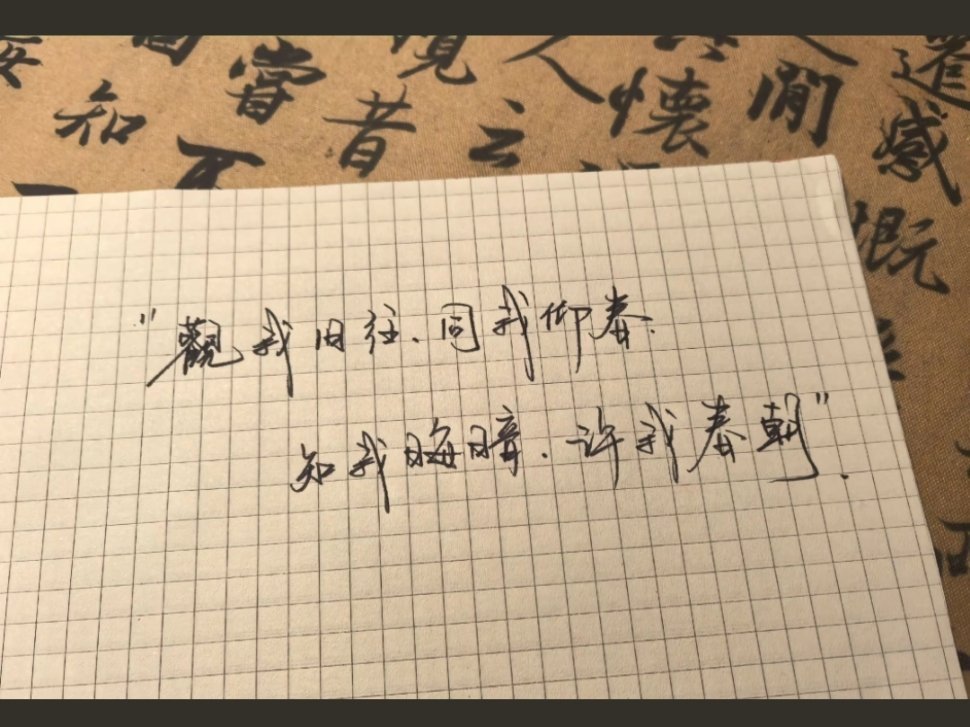 感慨
懷
嘗
知
"觀我旧往.同我仰春.
知我晦暗.许我春朝".